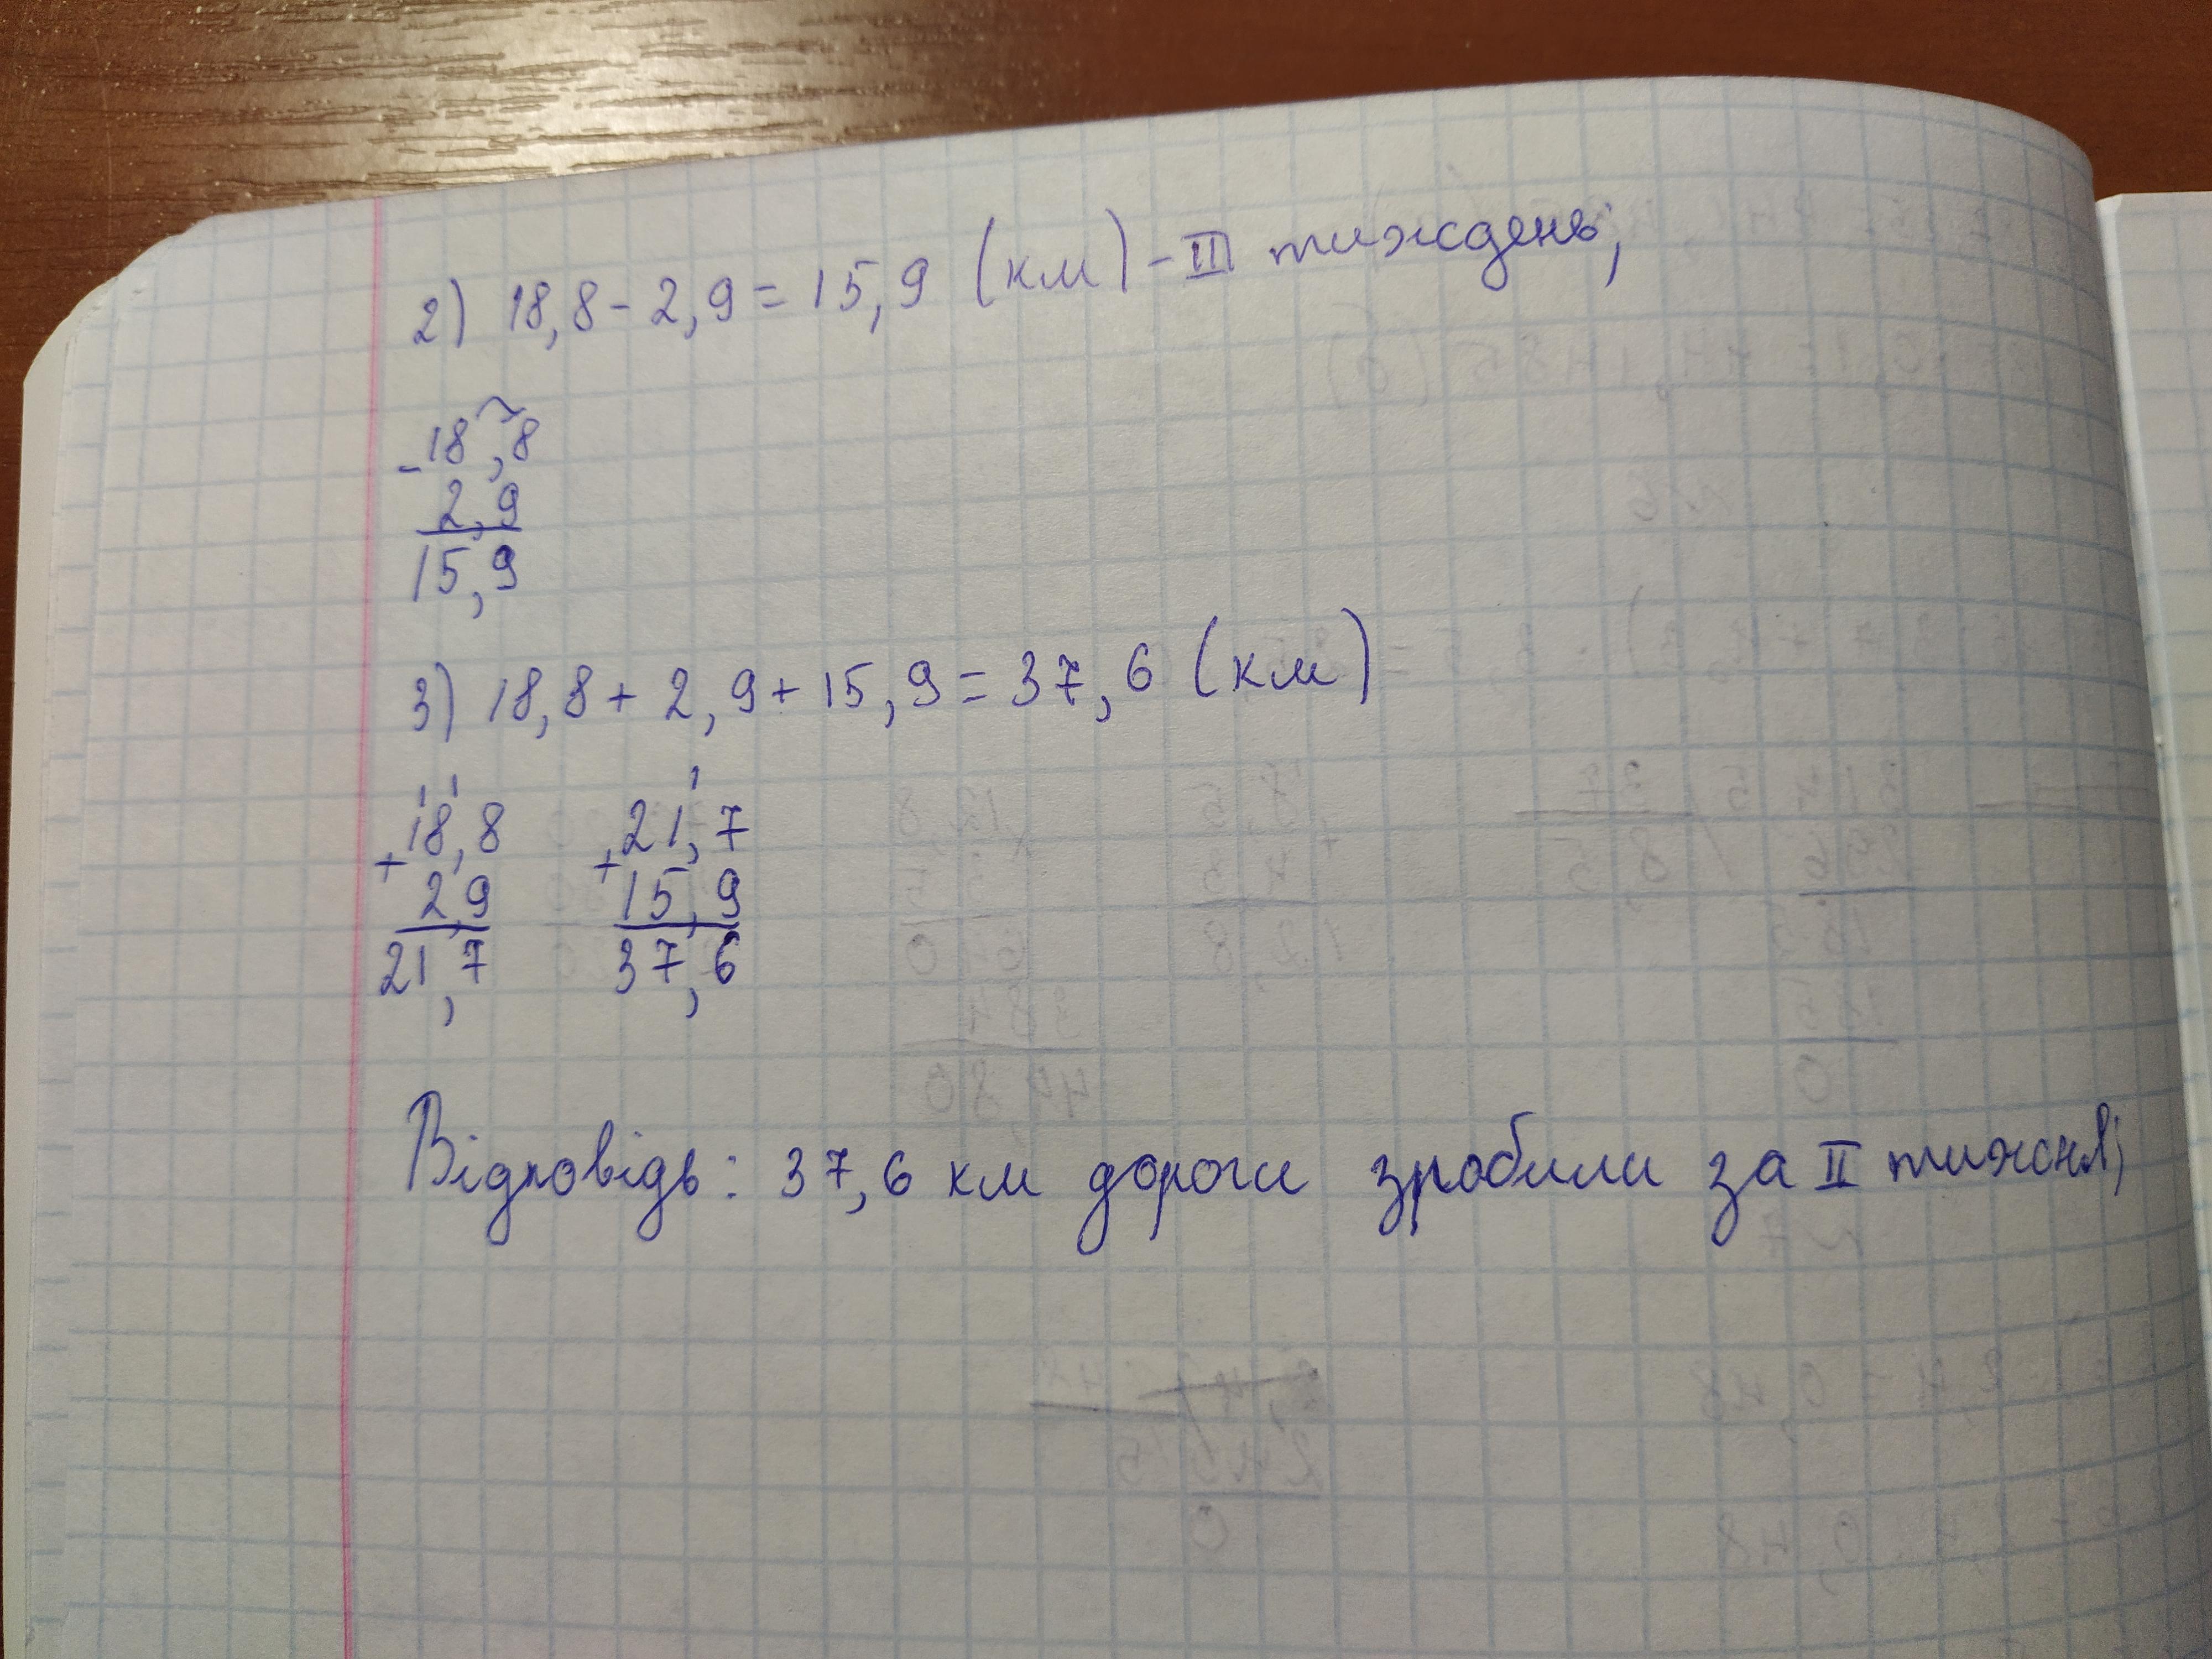 2) 18,8 - 2,9 = 15,9 (км) - III тиждень;
-18,8
2,9
15,9
3) 18,8 + 2,9 + 15,9 = 37,6 (км)
1 1 1
+18,8 +21,7
2,9 15,9
21,7 37,6
Відповідь: 37,6 км дороги зробили за II тижня;